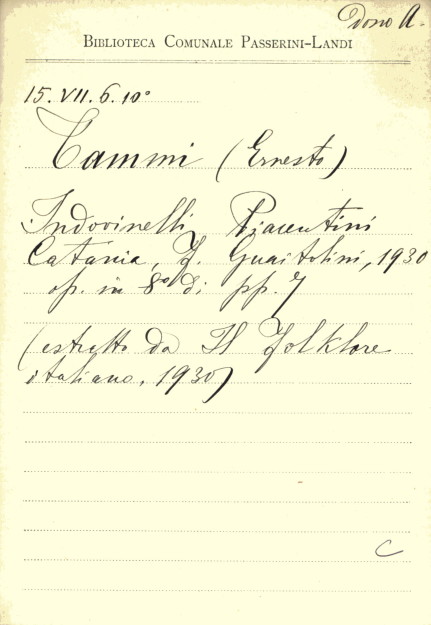 Dono A.
BIBLIOTECA COMUNALE PASSERINI-LANDI
15.VII.6.10°
Tammi (Ernesto)
Indovinelli Piacentini
Catania, F. Guaitolini, 1930
op. in 8° di pp. 7
(estratto da Il Folklore
italiano, 1930)
C